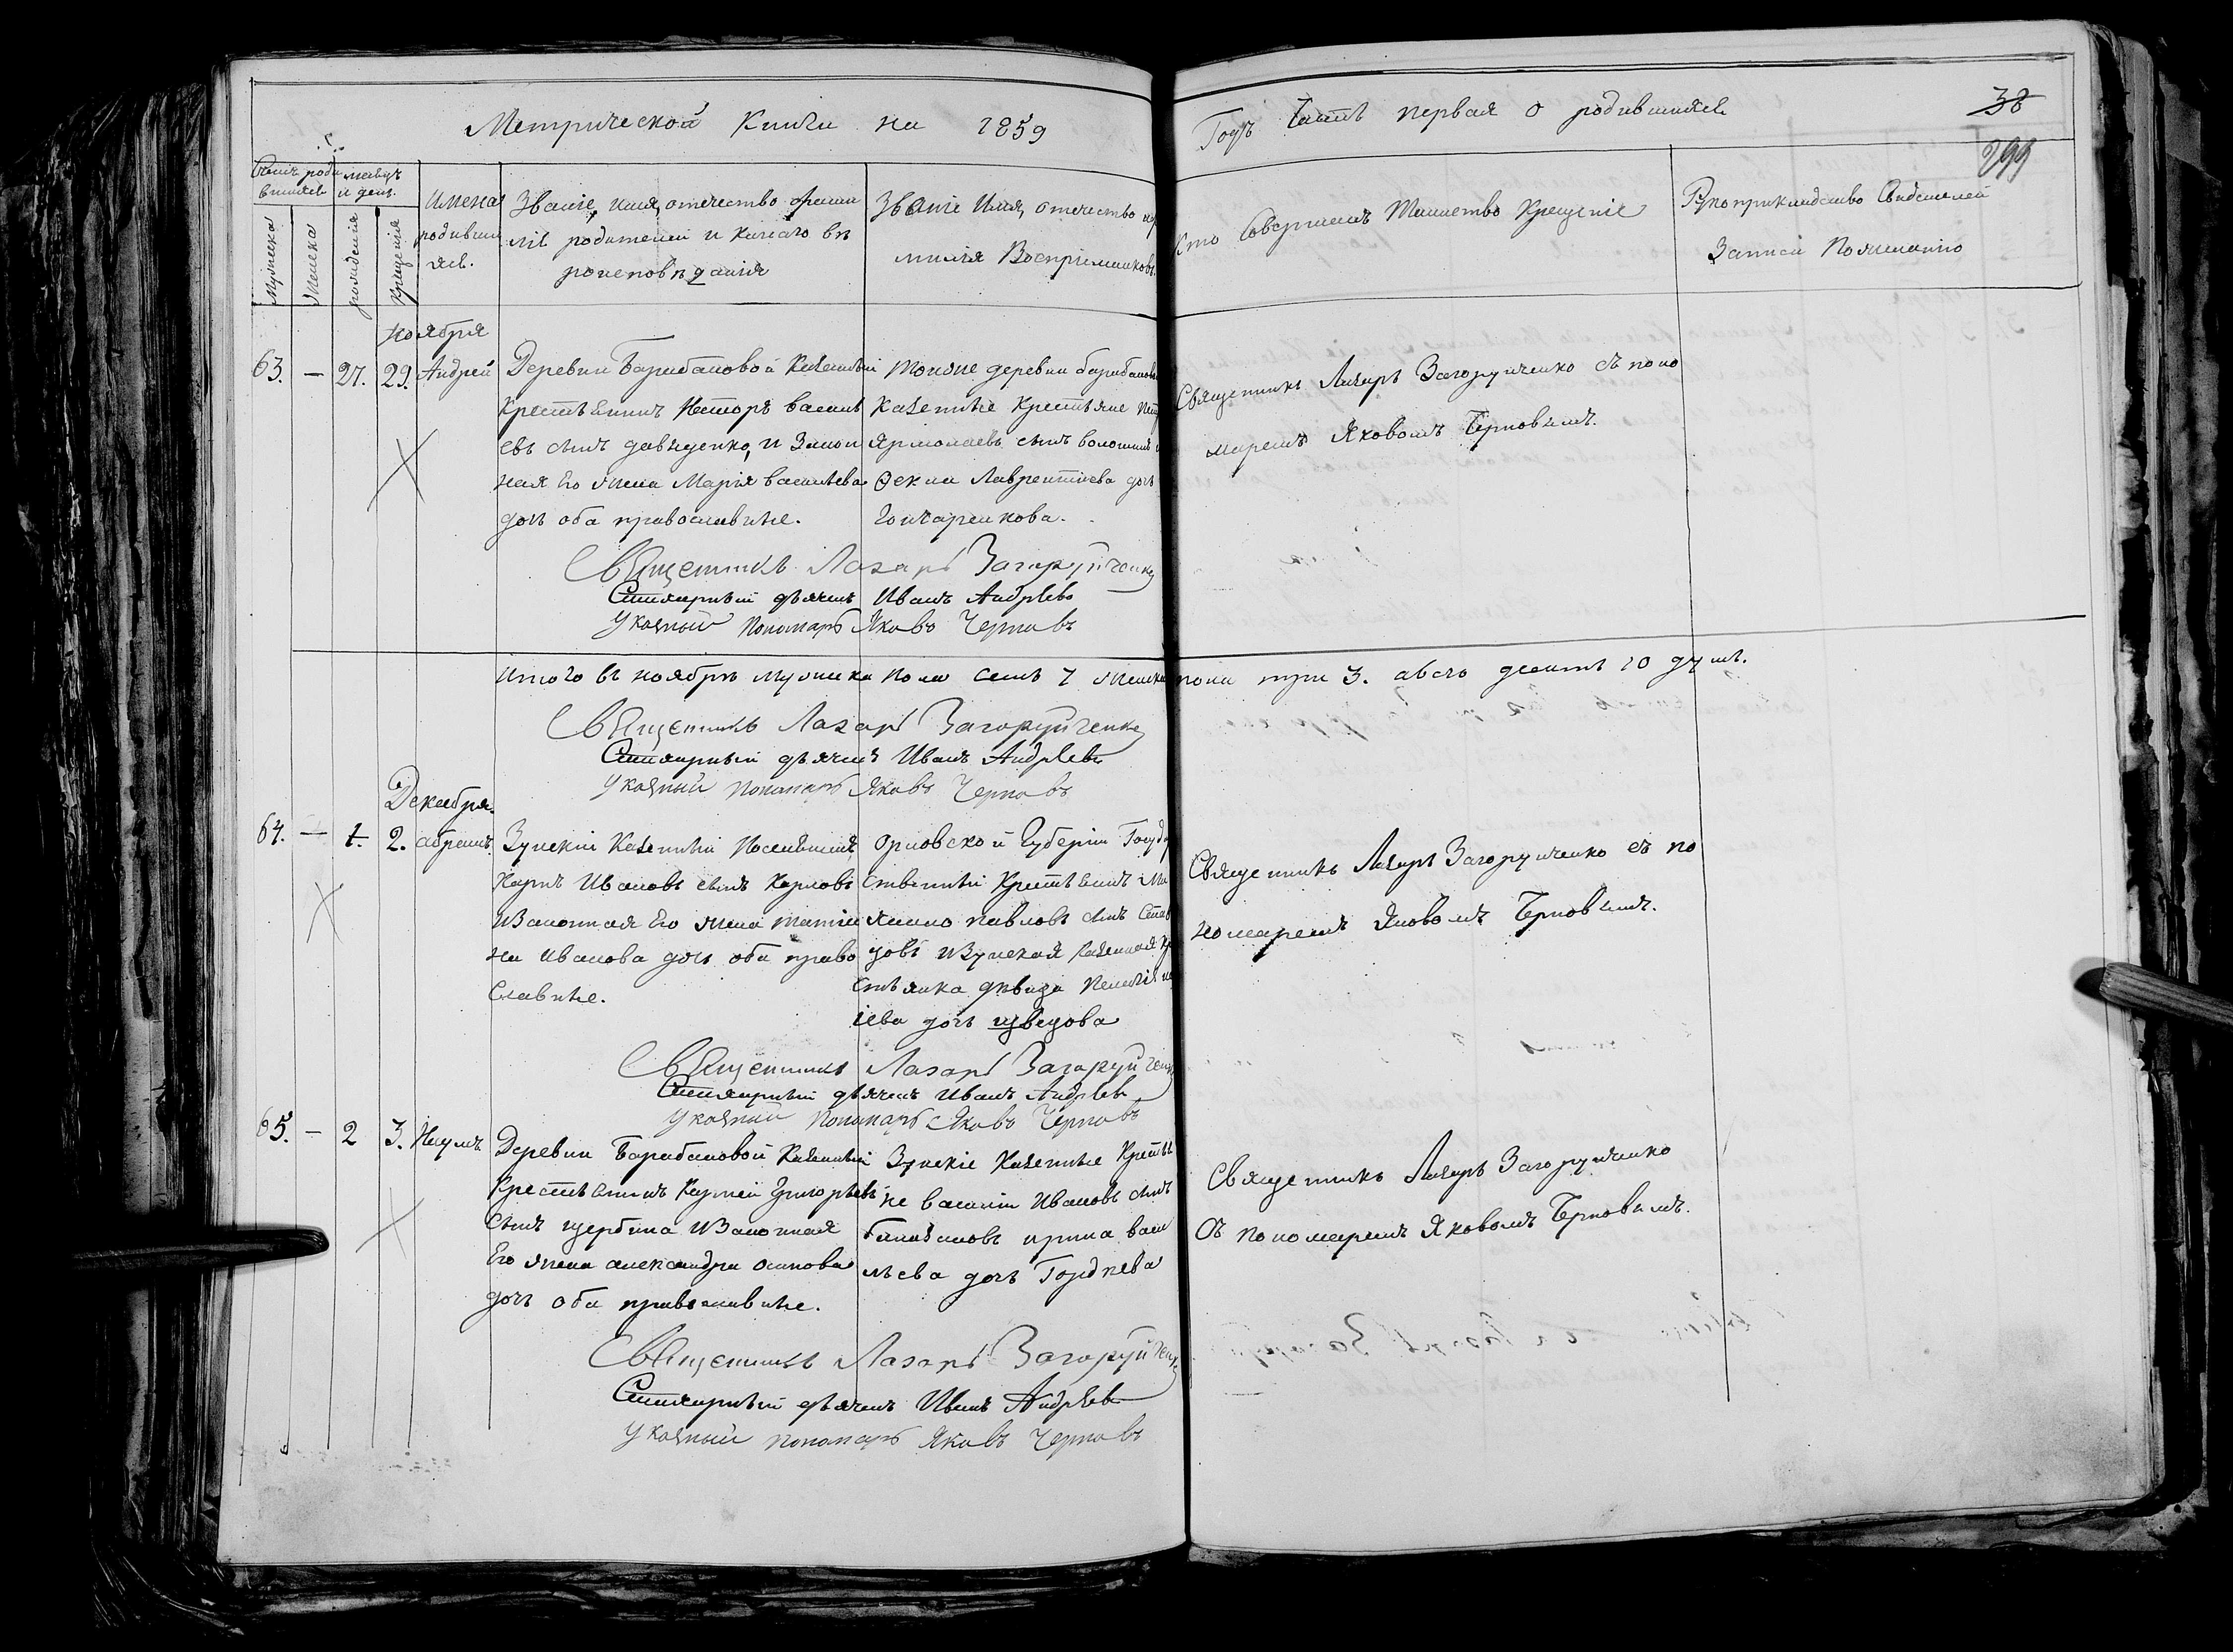 Метрической Книги на 1859
Годъ Часть первая о родившихся
38
299
Счетъ роди
вшихся
месяцъ
и день.
Мужеска
Женска
рождения
Крещения
Имена
родивши
хся.
Званіе, имя, отечество и фами
лія родителей и какого вѣ
роисповѣданія
Званіе Имя, отечество и ф
милія Воспріемниковъ.
Кто Совершалъ Таинство Крещенія
Рукоприкладство Свидетелей
Записи По желанію
ноября
63. — 27. 29. Андрей
Деревни Барабановой Казенный
Крестьянинъ Несторъ василь
евъ сынъ давыденко, и Закон
ная Его жена Марія васильева
дочь оба православные.
тойже деревни барабановой
Казенные Крестьяне Пет
Ярмолаевъ сынъ волошинъ и
Фекла Лаврентиева дочь
Гончаренкова.
Священникъ Лазарь Загоруйченко съ поно
маремъ Яковомъ Черновымъ.
Священникъ Лазарь Загоруйченко
Стихарный дьячекъ Иванъ Андреевъ
Указный пономарь Яковъ Черновъ
Итого въ ноябрѣ мужска пола семь 7 женска
пола три 3. а всего десять 10 душъ.
Священникъ Лазарь Загоруйченко
Стихарный дьячекъ Иванъ Андреевъ
Указный пономарь Яковъ Черновъ
Декабря.
64. — 1. 2. абрамъ.
Зуйскій Казенный Поселянинъ
Карпъ Ивановъ сынъ Карповъ
и Законная Его жена татия
на Иванова дочь оба право
славные.
Орловской Губерніи Госуда
ственный Крестьянинъ
павловъ сынъ
и Зуйская Казенная Кре
стьянка
іева дочь
Священникъ Лазарь Загоруйченко съ по
номаремъ Яковомъ Черновымъ.
Священникъ Лазарь Загоруйченко
Стихарный дьячекъ Иванъ Андреевъ
Указный пономарь Яковъ Черновъ
65. — 2 3. Наумъ
Деревни Барабановой Казенный
Крестьянинъ Кузмай Григорьевъ
сынъ щербина и Законная
Его жена александра осипова
дочь оба православные.
Зуйскіе Казенные Крестья
не василій Ивановъ сынъ
ирина васи
льева дочь Гордѣева
Священникъ Лазарь Загоруйченко
съ пономаремъ Яковомъ Черновымъ.
Священникъ Лазарь Загоруйченко
Стихарный дьячекъ Иванъ Андреевъ
Указный пономарь Яковъ Черновъ